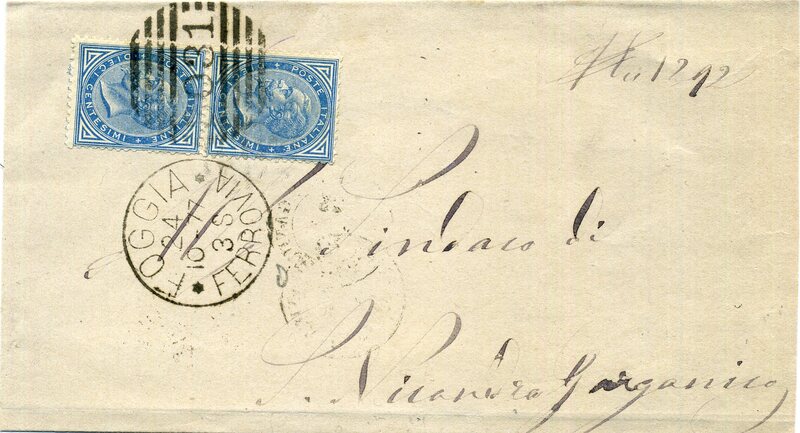 POSTE ITALIANE
DIECI CENTESIMI
POSTE ITALIANE
CENTESIMI
1292
FOGGIA
24
10 - 77
3 S
FERROVIA
Sindaco di
S. Nicandro Garganico